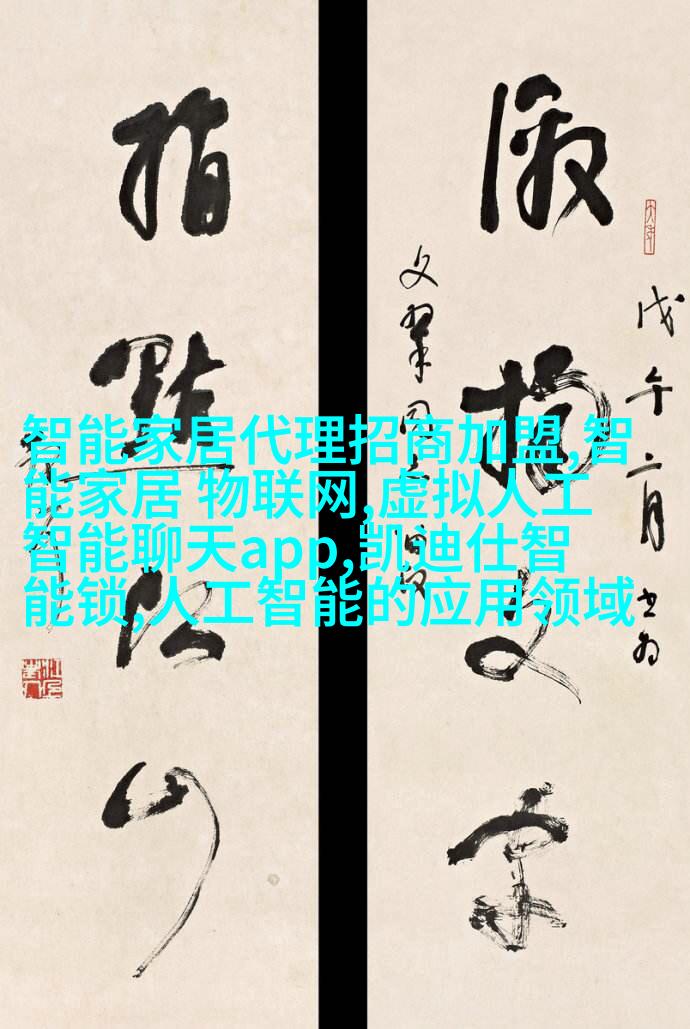 智能家居代理招商加盟,智
能家居 物联网,虚拟人工
智能聊天app,凯迪仕智
能锁,人工智能的应用领域
激揚文字
戊午二月书为
文翠同
指點江山